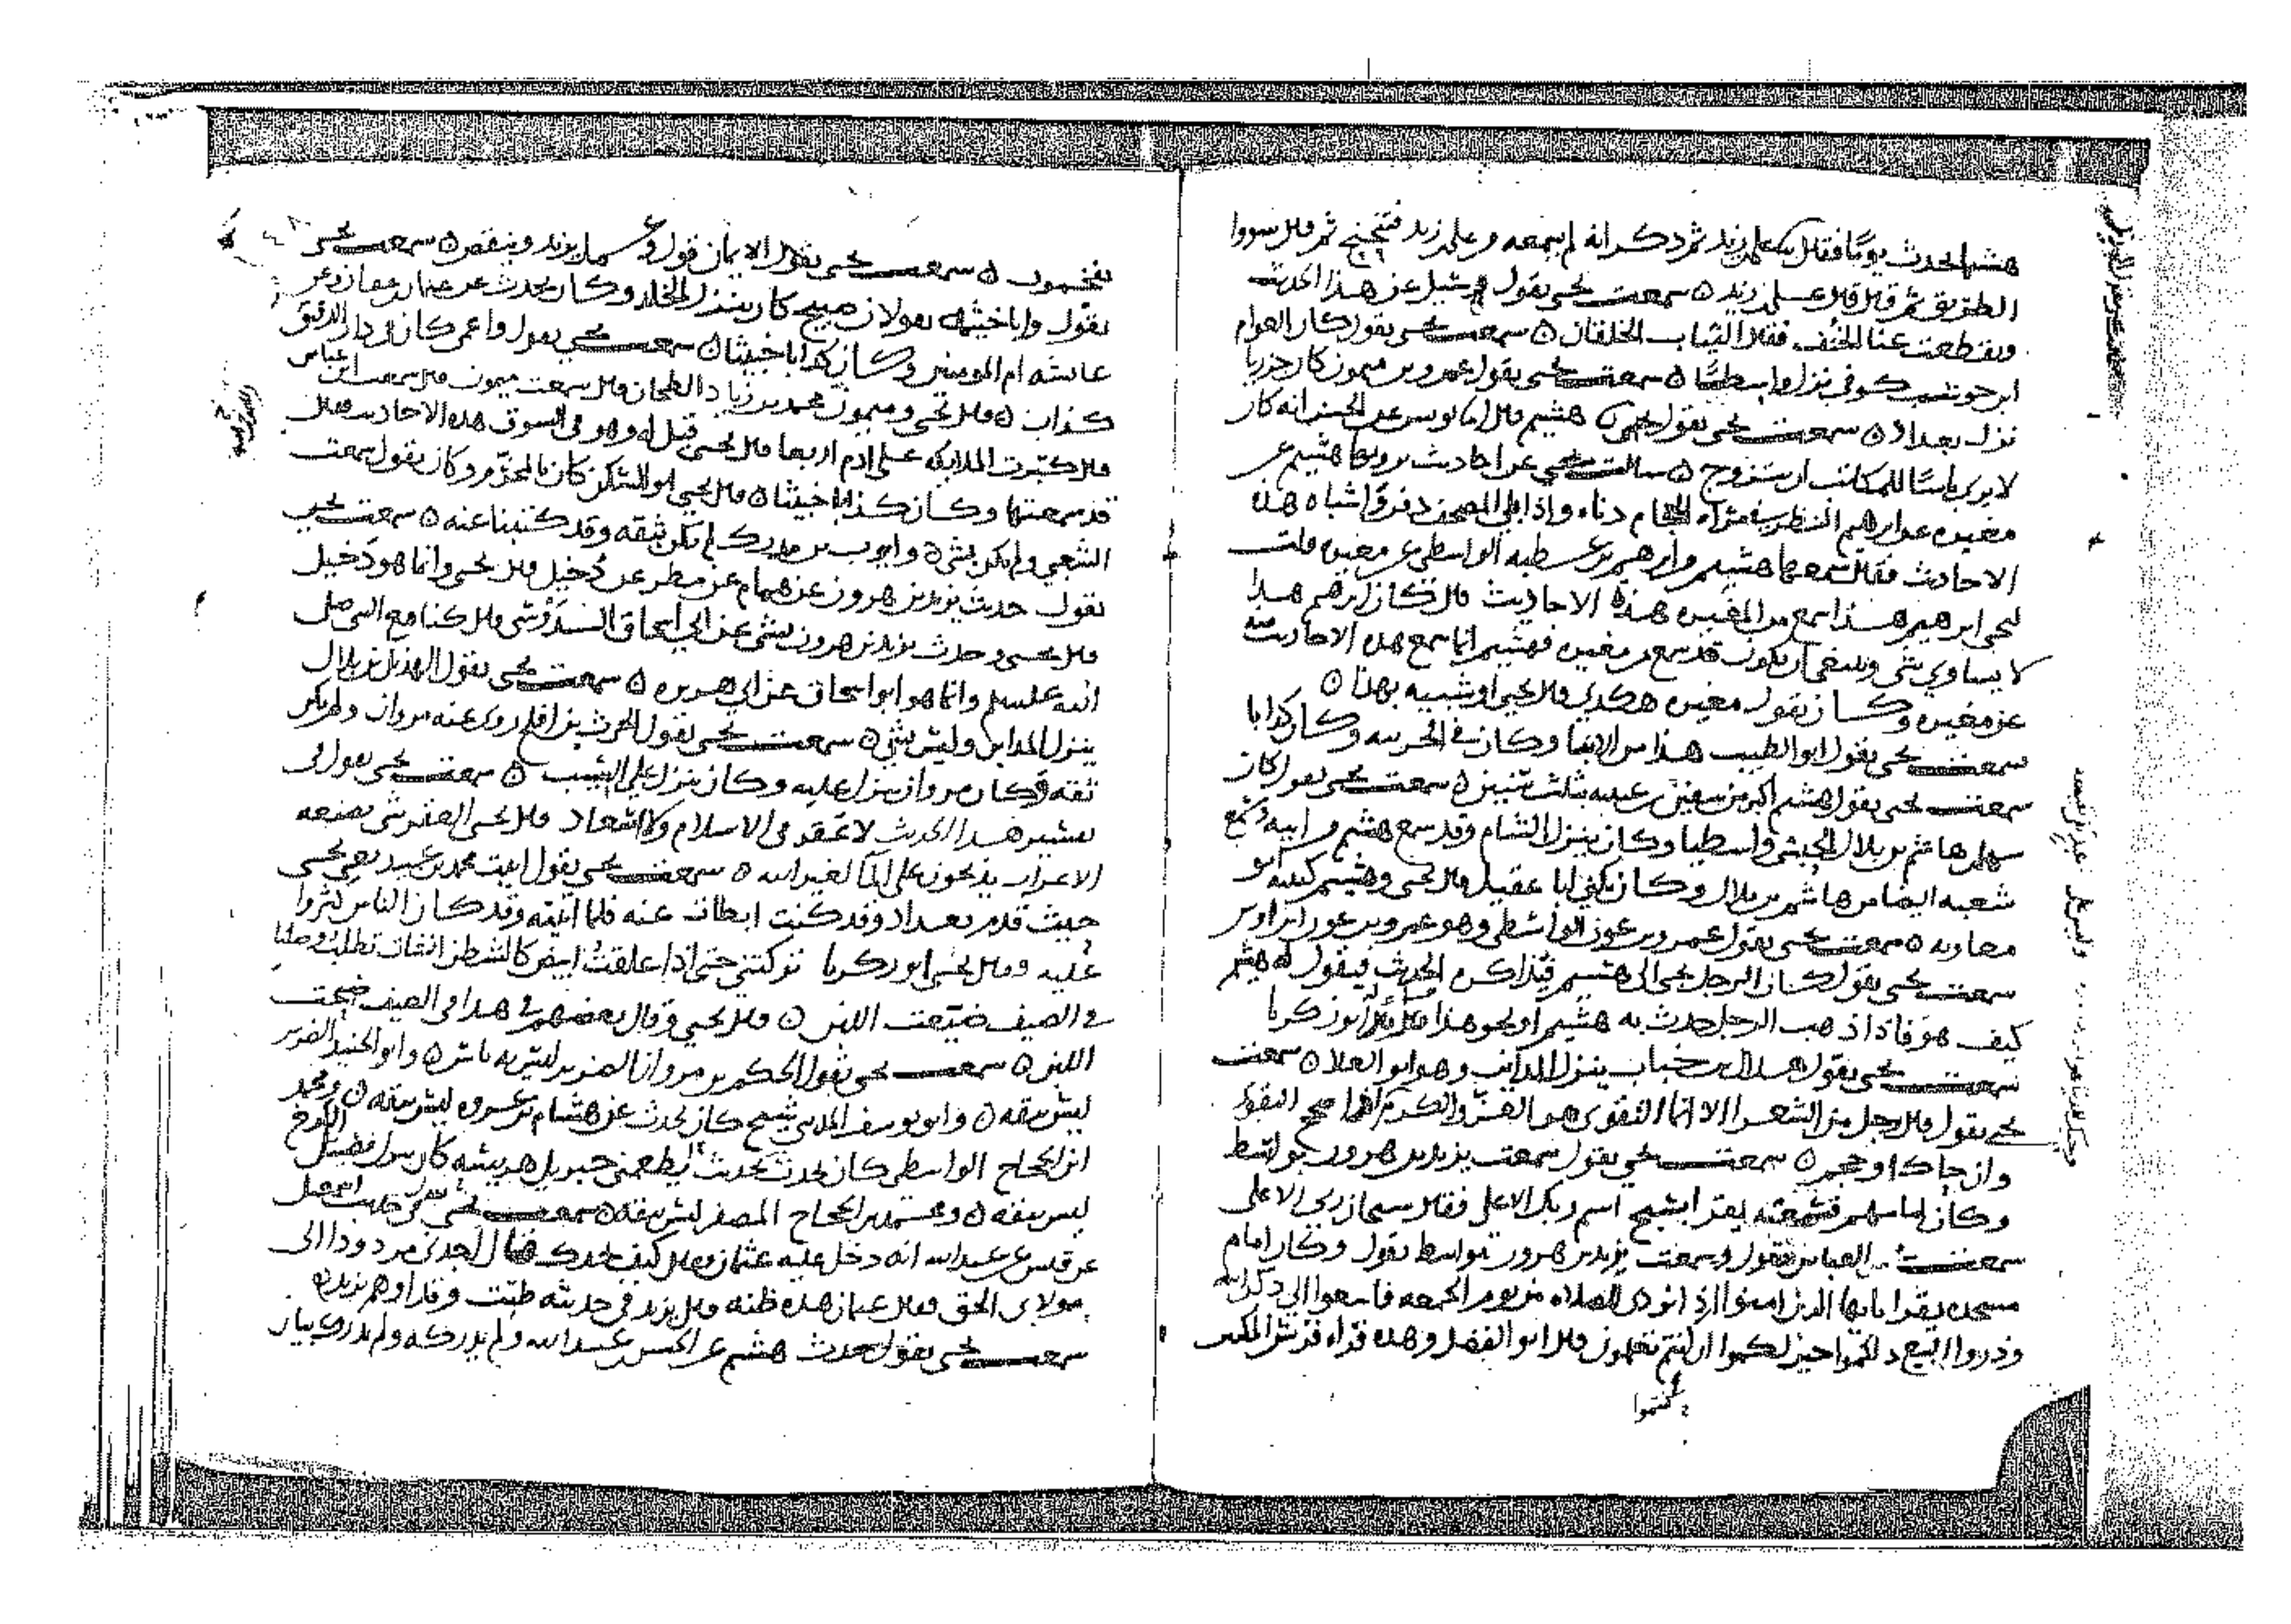 هشيم الحديث يوما فقال علي بن زيد ثم ذكر انه لم يسمعه وعلي بن زيد فتنحنح ثم قال سووا
الطريق ثم قال علي بن زيد ه سمعت يحيى يقول هشيم عن هذا الحديث
وتقطعت عنا الخنف فقال الثياب الخلقان ه سمعت يحيى يقول كان العوام
ابن حوشب كوفي نزل واسطا ه سمعت يحيى يقول عمرو بن ميمون كان جزريا
نزل بغداد ه سمعت يحيى يقول هشيم قال انا يونس عن الحسن انه كان
لا يرى باسا للمكاتب ان يتزوج ه سالت يحيى عن احاديث يرويها هشيم عن
مغيره عن ابرهيم النظر في مرآه الحجام دناءه واذا بلي المصحف دفن اشباه هذه
الاحاديث فقال سمعها هشيم من ابرهيم بن عطيه الواسطي عن مغيره قلت
ليحيى ابرهيم هذا سمع من المغيره هذه الاحاديث قال كان ابرهيم هذا
لا يساوي شي وينبغي ان يكون قد سمع من مغيره فهشيم انما سمع هذه الاحاديث منه
عن مغيره وكان يقول مغيره هكذى قال يحيى او شبيه بهذا ه
سمعت يحيى يقول ابو الطيب هذا من الابنا وكان في الحربيه وكان كذابا
سمعت يحيى يقول هشيم اكبر من سفين بن عيينه بثلث سنين ه سمعت يحيى يقول كان
سهل بن هاشم بن بلال الحبشي واسطيا وكان ينزل الشام وقد سمع هشيم من ابيه وسمع
شعبه ايضا من هاشم بن بلال وكان يكنى ابا عقيل قال يحيى وهشيم كنيته ابو
معاويه ه سمعت يحيى يقول عمرو بن عون الواسطي وهو عمرو بن عون بن اوس
سمعت يحيى يقول كان الرجل يجي الى هشيم فيذاكره الحديث فيقول له هشيم
كيف هو فاذا ذهب الرجل حدث به هشيم او نحو هذا قال ابو زكريا
سمعت يحيى يقول هلال بن خباب ينزل المداين وهو ابو العلا ه سمعت
يحيى يقول قال رجل من الشعرا الا انما التقوى هو العز والكرم اذا صحح التقوى
وان حاك او حجم ه سمعت يحيى يقول سمعت يزيد بن هرون بواسط
وكان امامهم فسمعته يقرا بسبح اسم ربك الاعلى فقال سبحان ربي الاعلى
سمعت العباس يقول وسمعت يزيد بن هرون بواسط يقول وكان امام
مسجده يقرا يايها الذين امنوا اذا نودي للصلاه من يوم الجمعه فاسعوا الى ذكر الله
وذروا البيع ذلكموا خير لكموا ان كنتم تعلمون قال ابو الفضل وهذه قراه
كنتموا
يختمون ه سمعت يحيى يقول الايمان قول وعمل يزيد وينقص ه سمعت يحيى
يقول وابا خيثمه يقولان صبيح كان ينزل الخلد وكان يحدث عن عثمان بن عفان وعن
عايشه ام المومنين وكان كذابا خبيثا ه سمعت يحيى يقول واعمى كان في دار الدقيق
كذاب ه قال يحيى وميمون محمد بن زياد الطحان قال سمعت ميمون قال سمعت ابن عباس
قال كبرت الملايكه على ادم اربعا قال يحيى قيل له وهو في السوق هذه الاحاديث فقال
قد سمعتها وكان كذابا خبيثا ه قال يحيى ابو السكن كان بالمخرم وكان يقول سمعت
الشعبي ولم يكن بشي ه وايوب بن مدرك لم يكن ثقه وقد كتبنا عنه ه سمعت يحيى
يقول حدث يزيد بن هرون عن همام عن مطر عن دخيل قال يحيى وانما هو دخيل
قال يحيى وحدث يزيد بن هرون بشي عن ابي اسحاق السدوسي قال كنا مع النبي صلى
الله عليه وسلم وانما هو ابو اسحاق عن ابي هريره ه سمعت يحيى يقول الهذيل بن بلال
ينزل المداين وليس بشي ه سمعت يحيى يقول الحرث بن افلح روى عنه مروان ولم يكن
ثقه وكان مروان ينزل عليه وكان ينزل على الشيب ه سمعت يحيى يقول في
تفسير هذا الحديث لا عقر في الاسلام ولا اسعاد قال يحيى العقر شي يصنعه
الاعراب يذبحون على الما لغير الله ه سمعت يحيى يقول اتيت محمد بن عبيد يعني يحيى
حيث قدم بغداد وقد كنت ابطات عنه فلما اتيته وقد كان الناس كثروا
عليه وقال يحيى ابو زكريا تركتني حتى اذا علقت ابيض كالشطن انشات تطلب وصلنا
في الصيف ضيعت اللبن ه قال يحيى وقال بعضهم في هذا في الصيف ضيحت
اللبن ه سمعت يحيى يقول الحكم بن مروان الضرير ليس به باس ه وابو الجنيد الضرير
ليس بثقه ه وابو يوسف المدني شيخ كان يحدث عن هشام بن عروه ليس بثقه ه ومحمد
ابن الحجاج الواسطي كان يحدث بحديث اطعمني جبريل هريسه كان ينزل الكرخ
ليس بثقه ه ومحمد بن الحجاج المصفر ليس بثقه ه سمعت يحيى يقول في حديث اسمعيل
عن قيس عن عبد الله انه دخل عليه عثمان فقال كيف تجدك فقال اجدني مردودا الى
مولاى الحق فقال عثمان هذه ظنه قال يزيد في حديثه طبت وقد اوهم يزيد ه
سمعت يحيى يقول حدث هشيم عن الحسن بن عبيد الله ولم يدركه ولم يدرك بيان